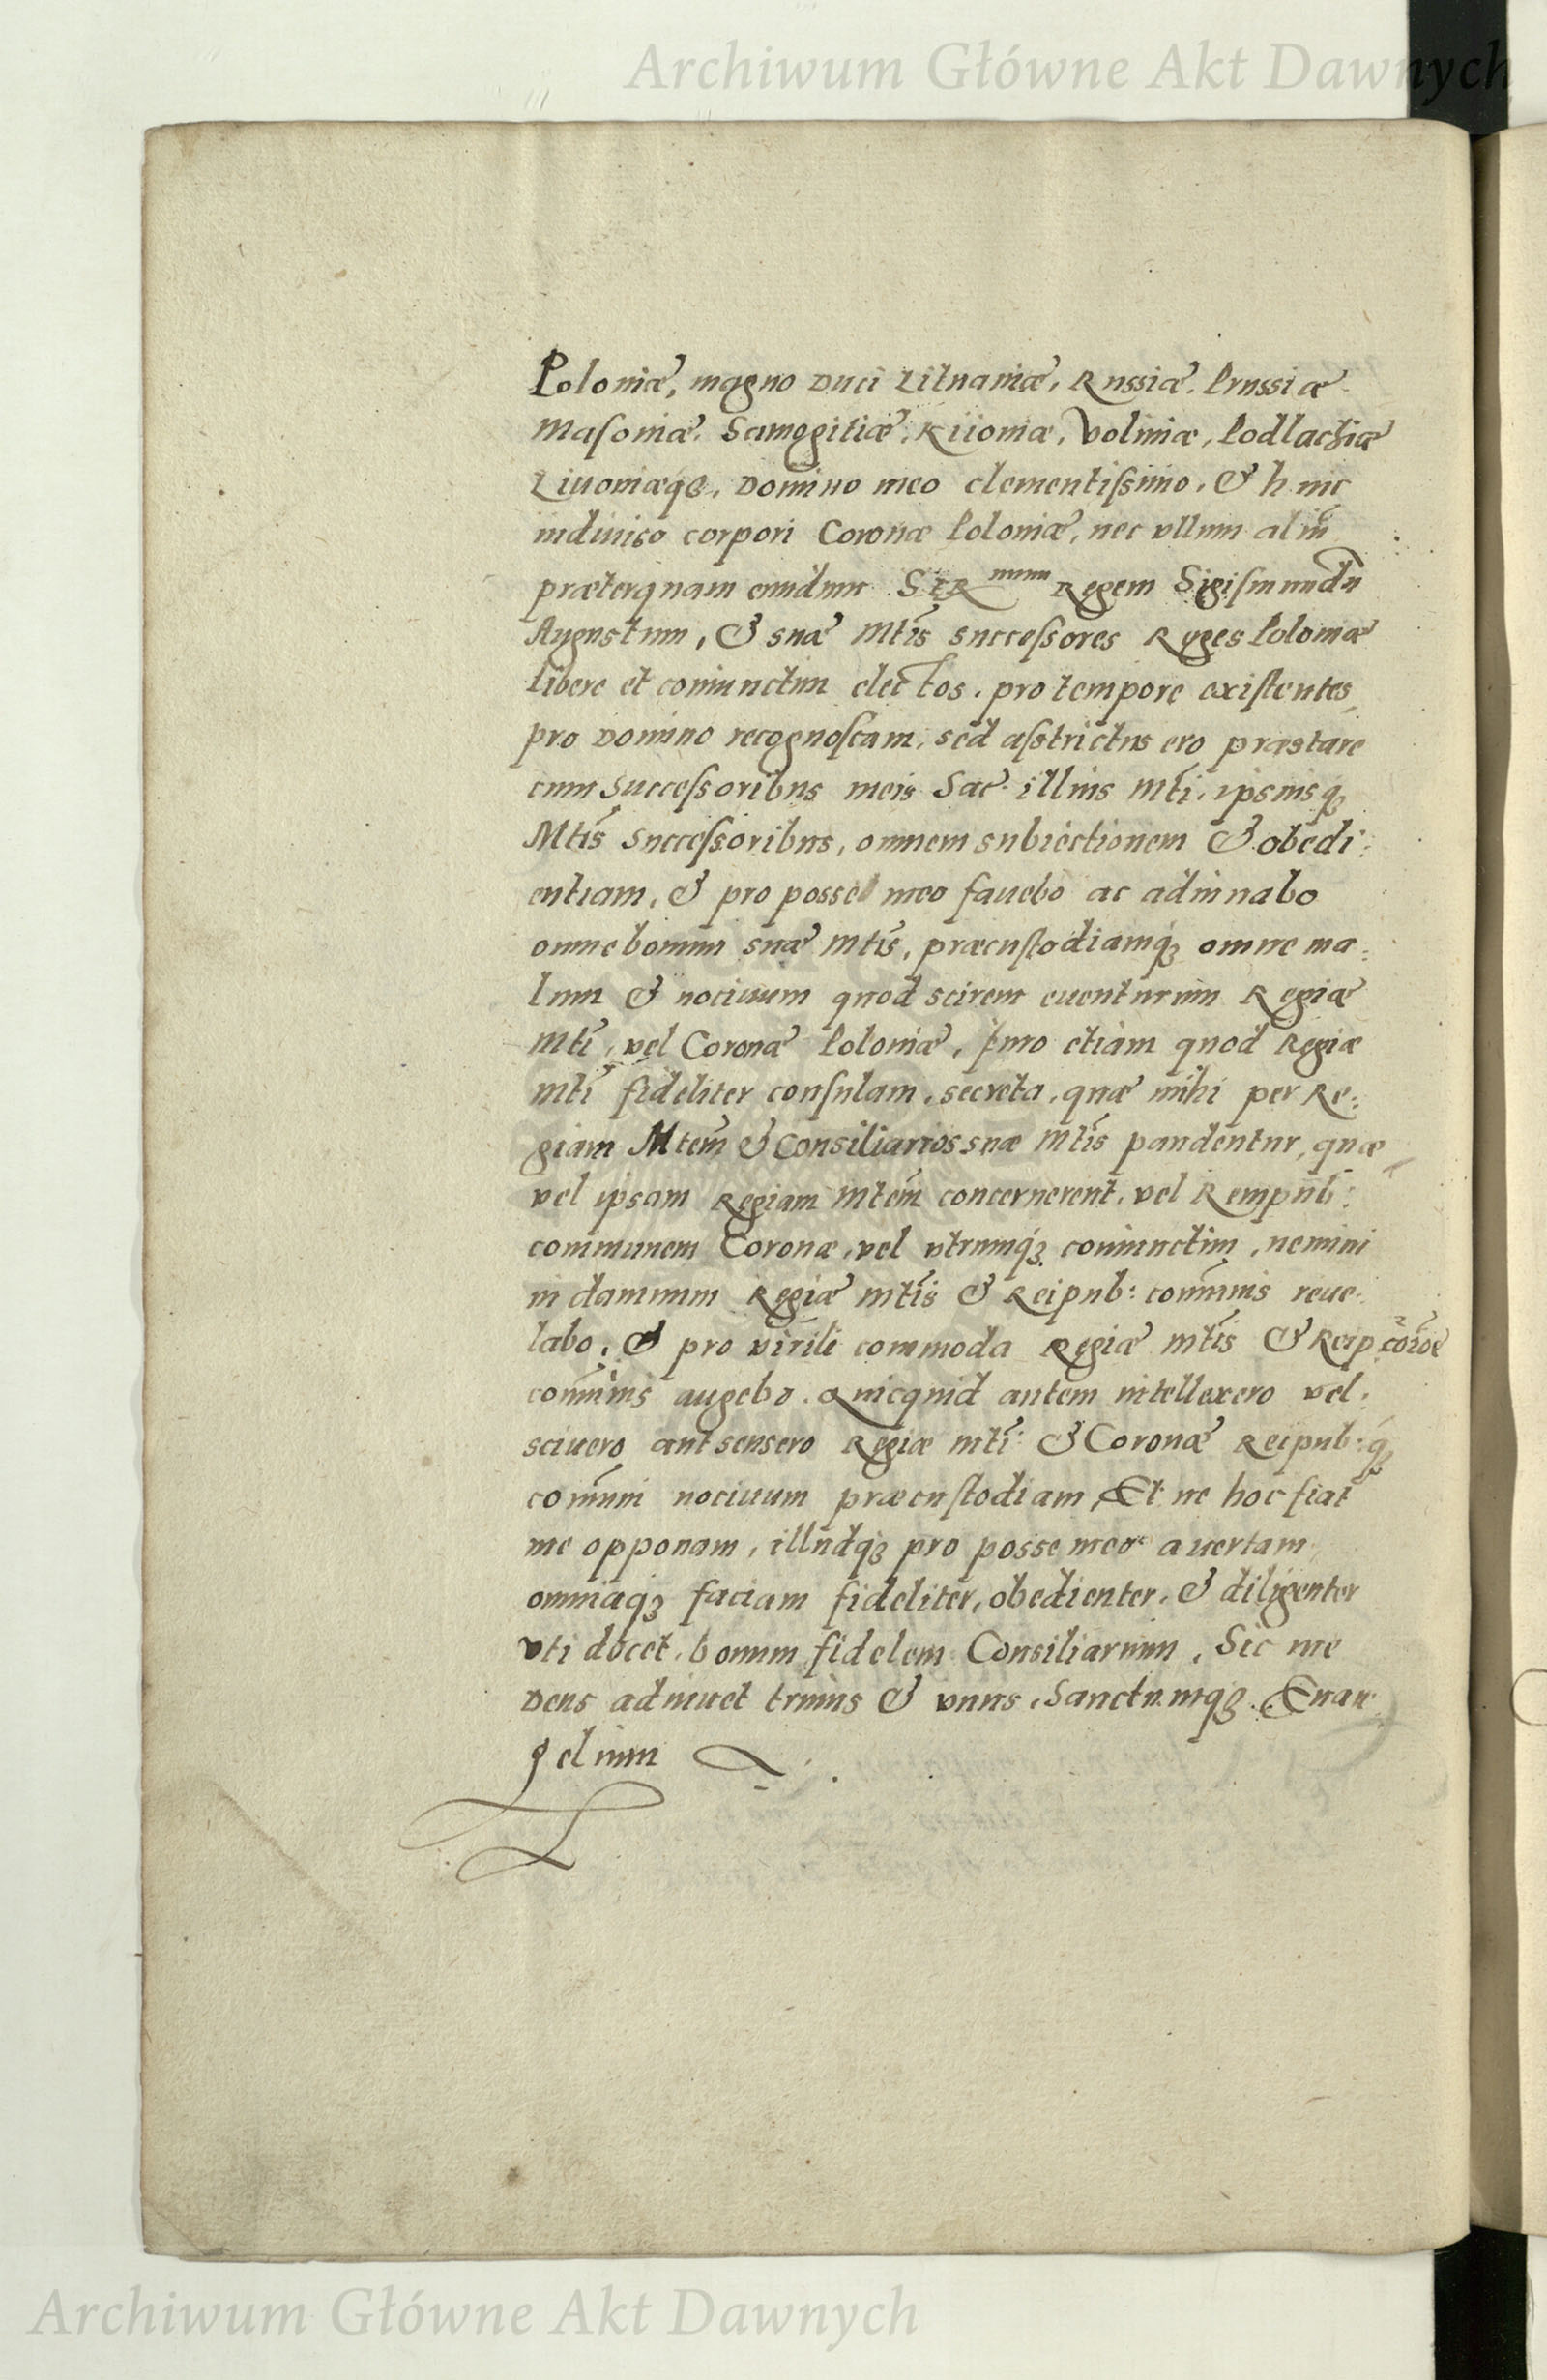 Archiwum Główne Akt Dawnych
Poloniæ, magno Duci Lituaniæ, Russiæ. Prussiæ
Masoniæ. Samogitiæ, Kiioniæ, Voliniæ, Podlachiæ
Liuoniæq₃, Domino meo clementissimo, & huic
indiuiso corpori Coronæ Poloniæ, nec vllum aliū
præterquam eundum SER^mum Regem Sigismundū
Augustum, & suæ Mtis successores Reges Poloniæ
libere et coniunctim electos, pro tempore existentes,
pro Domino recognoscam, sed astrictus ero præstare
cum Successoribus meis Sac. illius Mti. ipsiusq₃
Mtis Successoribus, omnem subiectionem & obedi:
entiam, & pro posse meo fauebo ac adiuuabo
omne bonum suæ Mtis, præcustodiamq₃ omne ma:
lum & nociuum quod scirem euenturum Regiæ
Mti, vel Coronæ Poloniæ, Imo etiam quod Regiæ
Mti fideliter consulam, secreta, quæ mihi per Re:
giam Mtem & Consiliarios suæ Mtis pandentur, quæ
vel ipsam Regiam Mtem concernerent, vel Rempub:
communem Coronæ, vel vtrumq₃ coniunctim, nemini
in damnum Regiæ Mtis & Reipub: com̄unis reue:
labo, & pro virili commoda Regiæ Mtis & Reip
com̄unis augebo. Quicquid autem intellexero vel
sciuero aut sensero Regiæ Mti & Coronæ Reipub:q₃
com̄uni nociuum præcustodiam, Et ne hoc fiat
me opponam, illudq₃ pro posse meo auertam
omniaq₃ faciam fideliter, obedienter, & diligenter
vti docet, bonum fidelem Consiliarium, Sic me
Deus adiuuet trinus & vnus, Sanctumq₃ Euan
gelium
Archiwum Główne Akt Dawnych